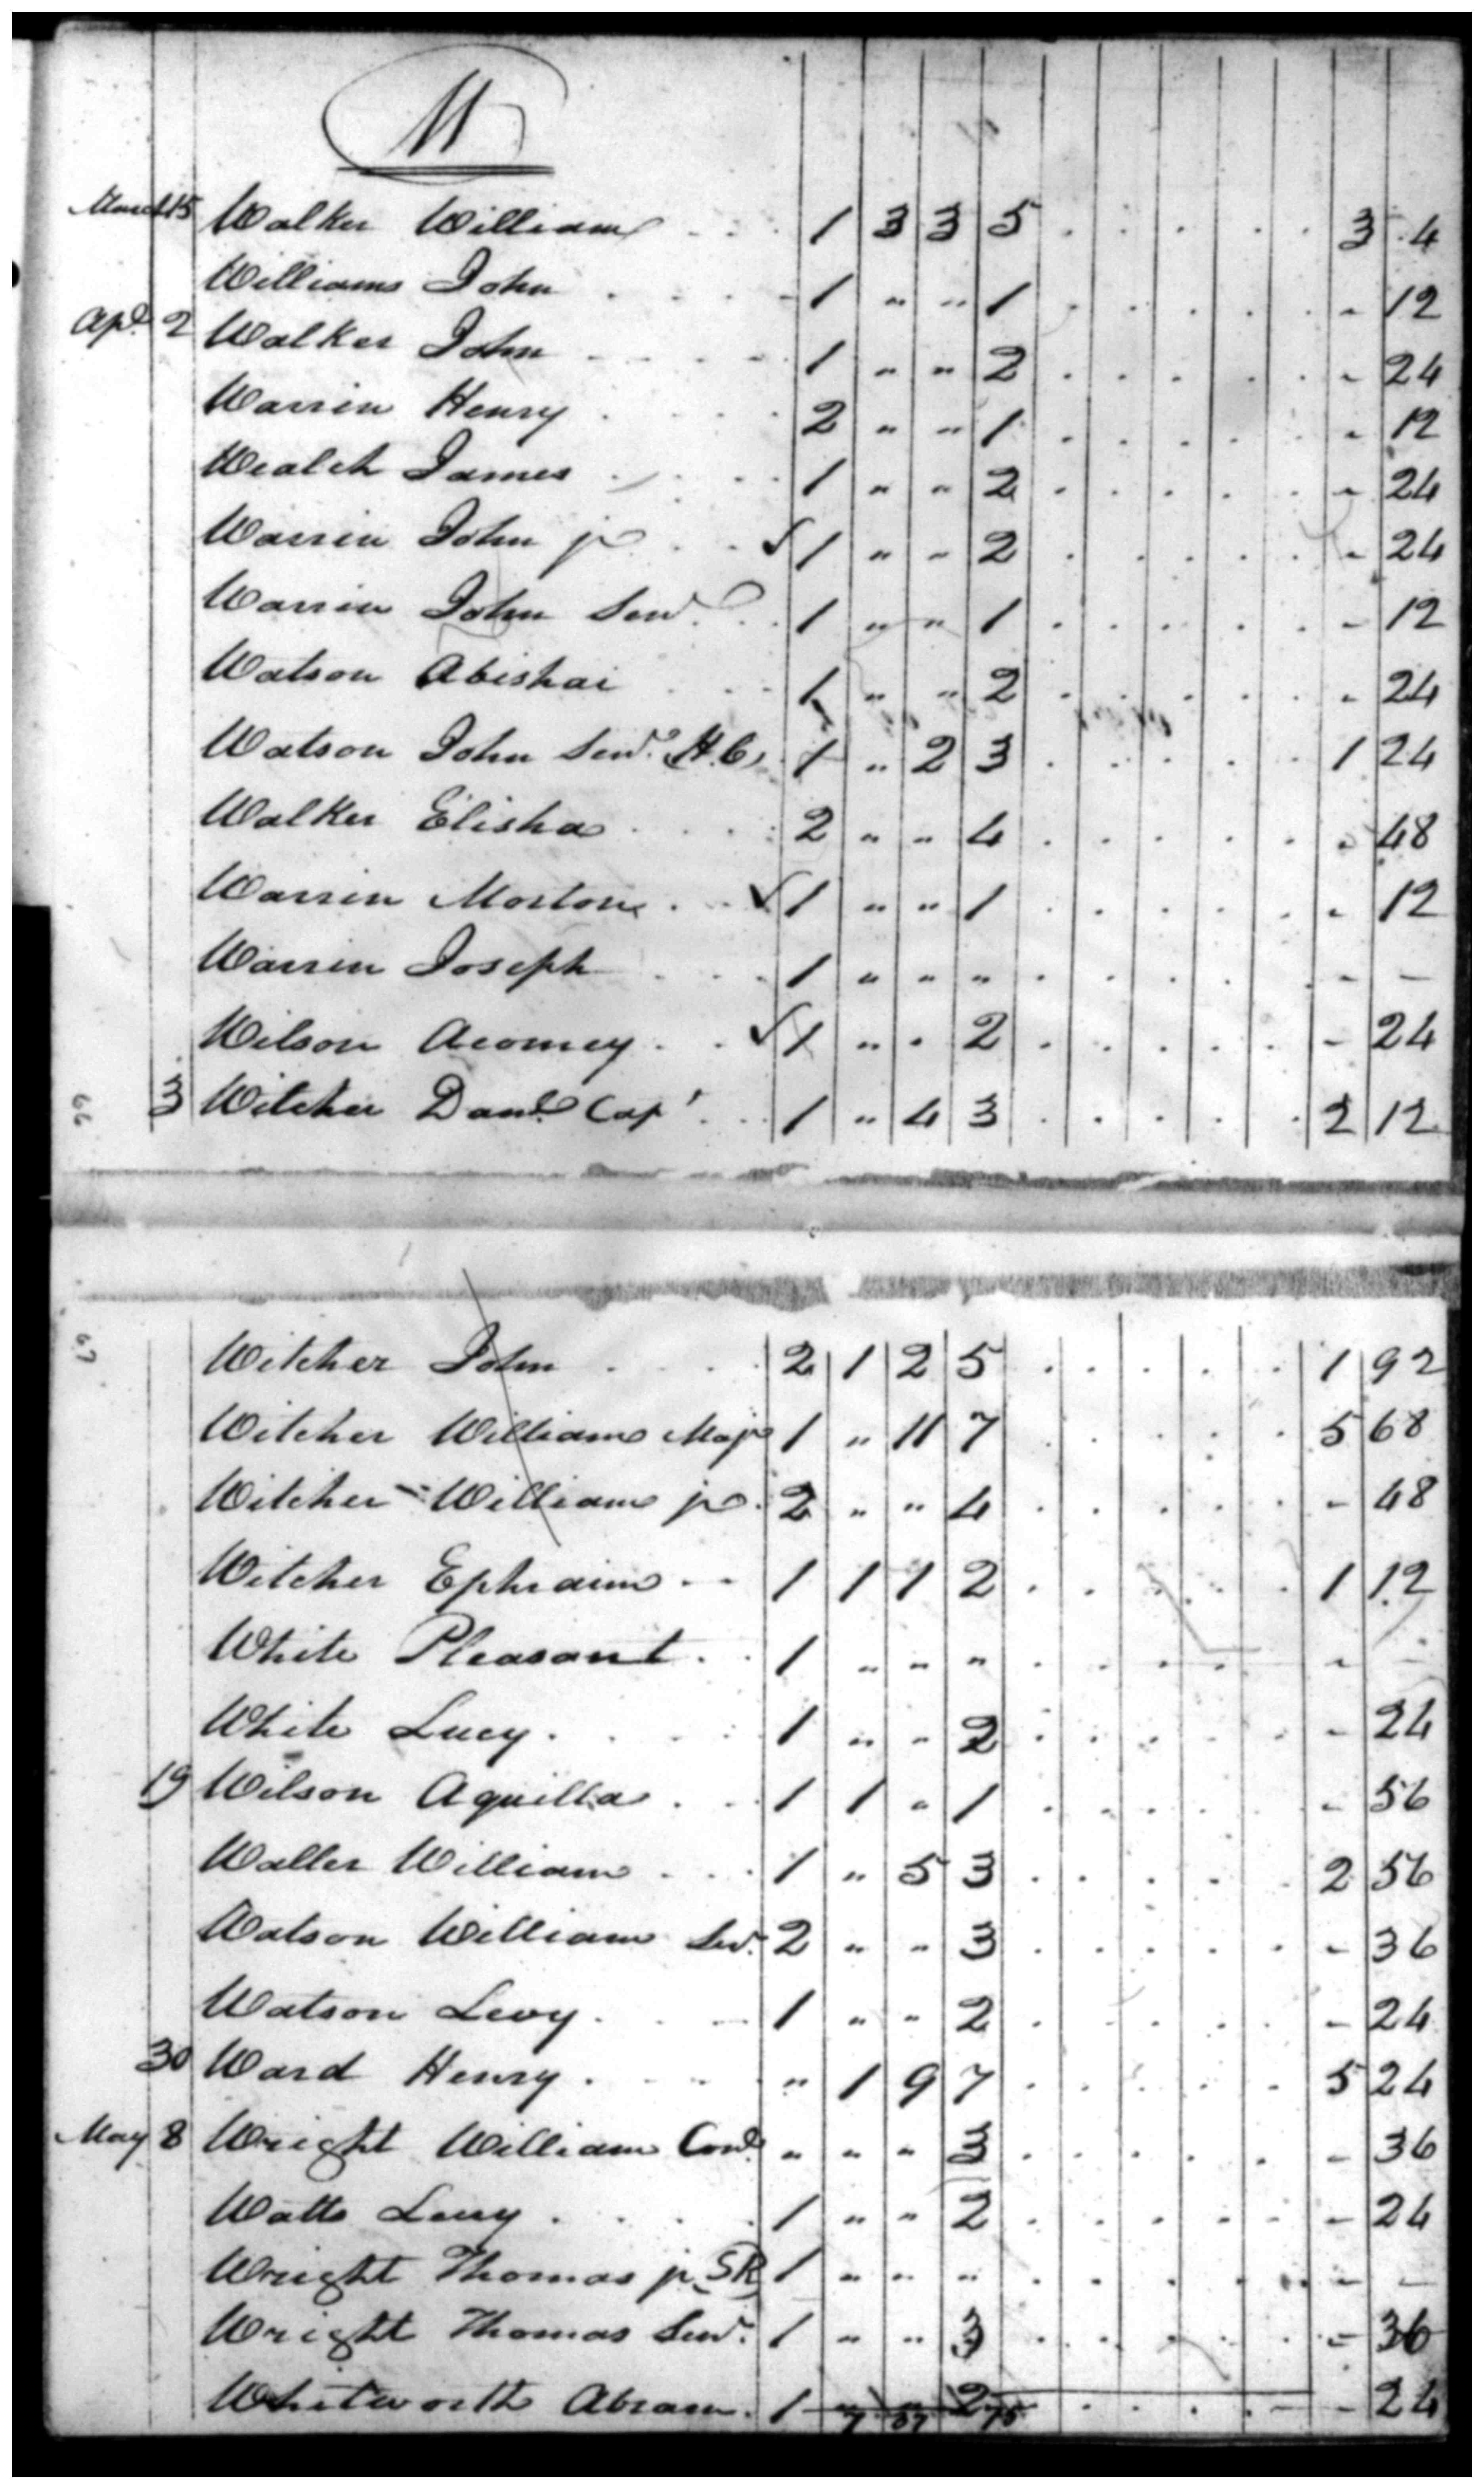 W
March 15 Walker William 1 3 3 5 . . . . . 3 . 4
Williams John 1 " " 1 . . . . . - 12
Apl. 2 Walker John 1 " " 2 . . . . . - 24
Warrin Henry 2 " " 1 . . . . . - 12
Wealch James 1 " " 2 . . . . . - 24
Warrin John jr 1 " " 2 . . . . . - 24
Warrin John Senr. 1 " " 1 . . . . . - 12
Watson Abishai 1 " " 2 . . . . . - 24
Watson John Senr. (H.C) 1 " 2 3 . . . . . 1 24
Walker Elisha 2 " " 4 . . . . . - 48
Warrin Morton 1 " " 1 . . . . . - 12
Warrin Joseph 1 " " " . . . . . - -
Wilson Acomey 1 " " 2 . . . . . - 24
66 3 Witcher Danl. Capt 1 " 4 3 . . . . . 2 12
67 Witcher John 2 1 2 5 . . . . . 1 92
Witcher William Majr 1 " 11 7 . . . . . 5 68
Witcher William jr. 2 " " 4 . . . . . - 48
Witcher Ephraim 1 1 1 2 . . . . . 1 12
White Pleasant 1 " " " . . . . . - -
White Lucy 1 " " 2 . . . . . - 24
19 Wilson Aquilla 1 1 " 1 . . . . . - 56
Waller William 1 " 5 3 . . . . . 2 56
Watson William Senr. 2 " " 3 . . . . . - 36
Watson Levy 1 " " 2 . . . . . - 24
30 Ward Henry " 1 9 7 . . . . . 5 24
May 8 Wright William Cond. " " " 3 . . . . . - 36
Watts 1 " " 2 . . . . . - 24
Wright Thomas jr (SR) 1 " " " . . . . . - -
Wright Thomas Senr. 1 " " 3 . . . . . - 36
Whitworth Abram. 1 " " 2 . . . . . - 24
7 37 75